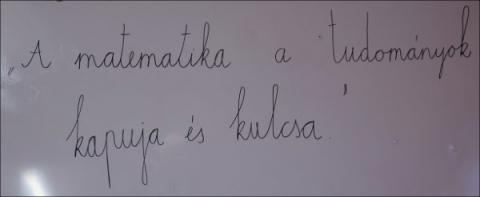 „A matematika a tudományok
kapuja és kulcsa.”